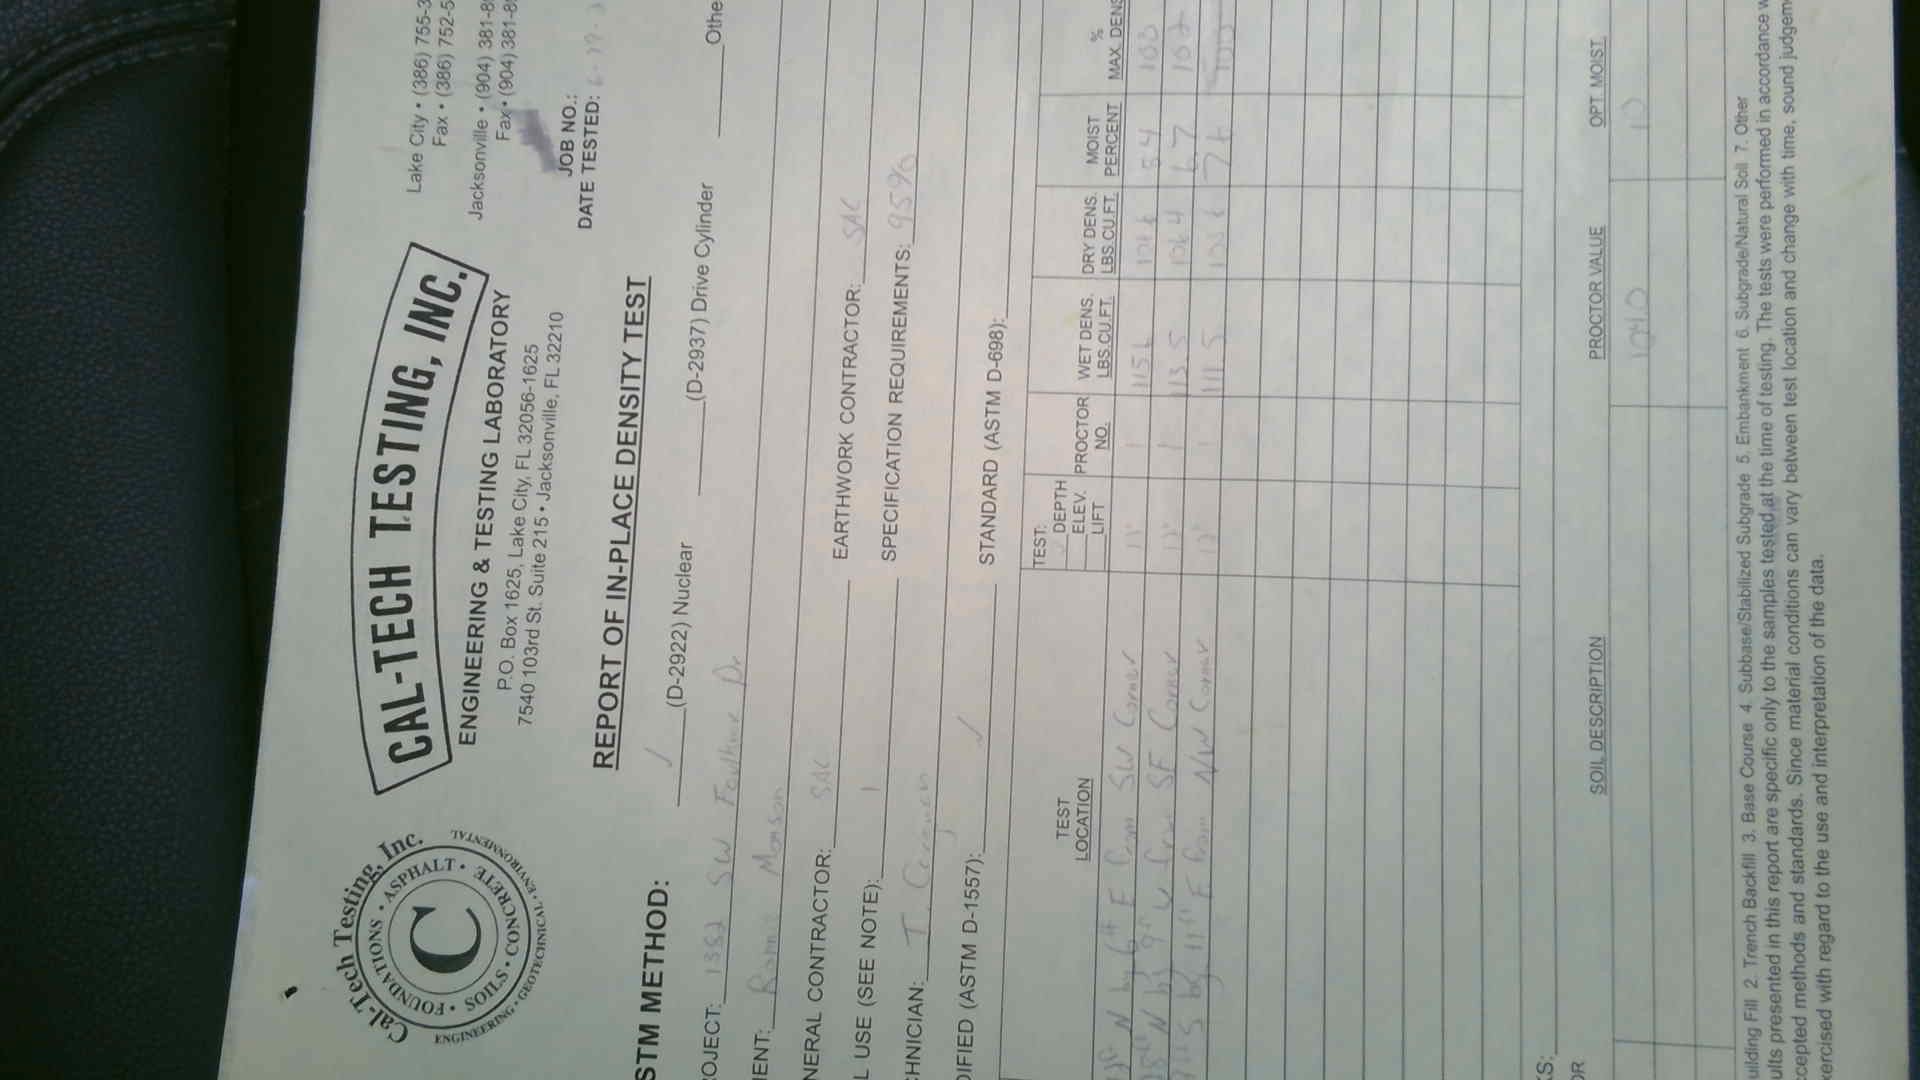 Cal-Tech Testing, Inc.
FOUNDATIONS • ASPHALT •
SOILS • CONCRETE
C
ENGINEERING • GEOTECHNICAL • ENVIRONMENTAL
CAL-TECH TESTING, INC.
ENGINEERING & TESTING LABORATORY
P.O. Box 1625, Lake City, FL 32056-1625
7540 103rd St. Suite 215 • Jacksonville, FL 32210
Lake City • (386) 755-3
Fax • (386) 752-5
Jacksonville • (904) 381-89
Fax • (904) 381-89
JOB NO.:
DATE TESTED:
REPORT OF IN-PLACE DENSITY TEST
STM METHOD: (D-2922) Nuclear (D-2937) Drive Cylinder Othe
OJECT: 1382 SW Dr
IENT: Ronnie Monson
NERAL CONTRACTOR: SAC EARTHWORK CONTRACTOR: SAC
L USE (SEE NOTE): 1 SPECIFICATION REQUIREMENTS: 95%
CHNICIAN: T.
DIFIED (ASTM D-1557): ✓ STANDARD (ASTM D-698):
TEST LOCATION TEST: DEPTH ELEV. LIFT PROCTOR NO. WET DENS. LBS.CU.FT. DRY DENS. LBS.CU.FT. MOIST PERCENT % MAX. DENS
N by 6" E from SW Corner 1 115 100
15" N by 9" W from SE Corner 12" 1 113.5 106.4 6.7 102
S by 11" E from NW Corner 12" 1 111.5 100
KS:
OR SOIL DESCRIPTION PROCTOR VALUE OPT MOIST
104.0 10
uilding Fill 2. Trench Backfill 3. Base Course 4. Subbase/Stabilized Subgrade 5. Embankment 6. Subgrade/Natural Soil 7. Other
ults presented in this report are specific only to the samples tested at the time of testing. The tests were performed in accordance w
ccepted methods and standards. Since material conditions can vary between test location and change with time, sound judgem
xercised with regard to the use and interpretation of the data.